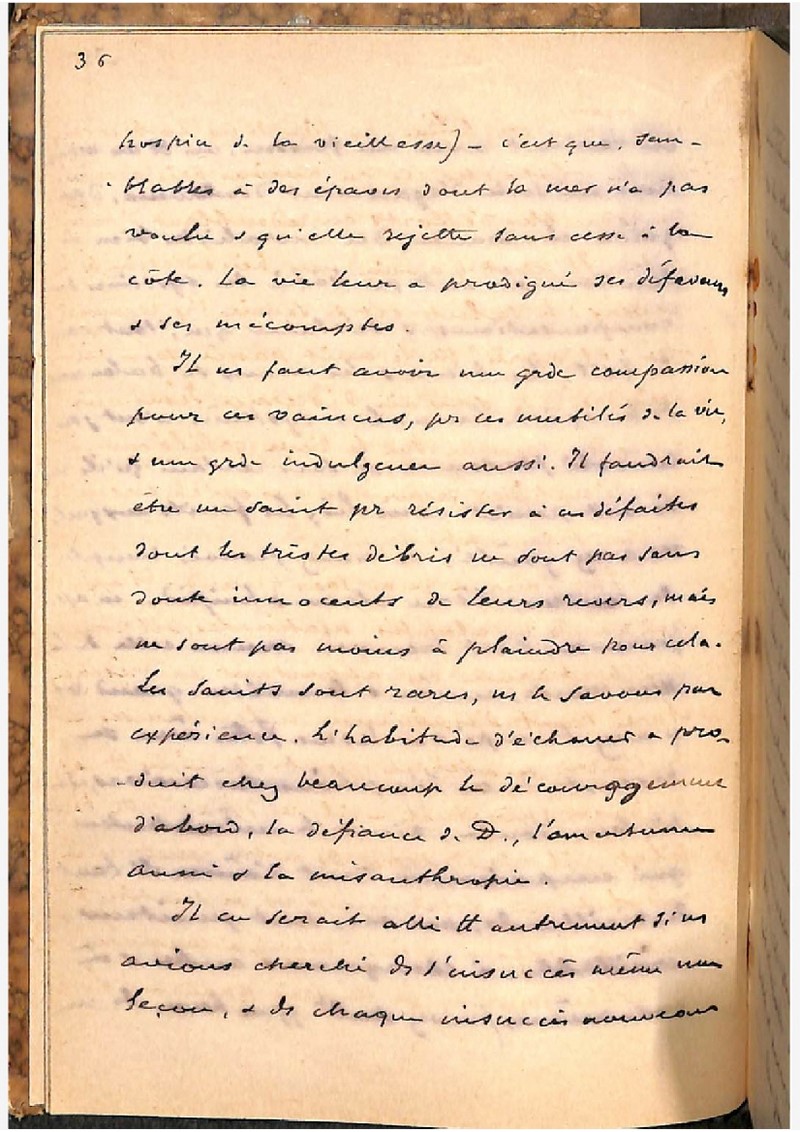 36
hospice de la vieillesse) - c'est que, sem-
blables à des épaves dont la mer n'a pas
voulu & qu'elle rejette sans cesse à la
côte. La vie leur a prodigué ses défaveurs
& ses mécomptes.
Il ns faut avoir une grde compassion
pour ces vaincus, pr ces mutilés de la vie,
& une grde indulgence aussi. Il faudrait
être un saint pr résister à ces défaites
dont les tristes débris ne sont pas sans
doute innocents de leurs revers, mais
ne sont pas moins à plaindre pour cela.
Les saints sont rares, ns le savons par
expérience. L'habitude d'échouer a pro-
duit chez beaucoup le découraggement
d'abord, la défiance de D., l'amertume
aussi & la misanthropie.
Il en serait allé tt autrement si ns
avions cherché ds l'insuccès même une
leçon, & ds chaque insuccès nouveau